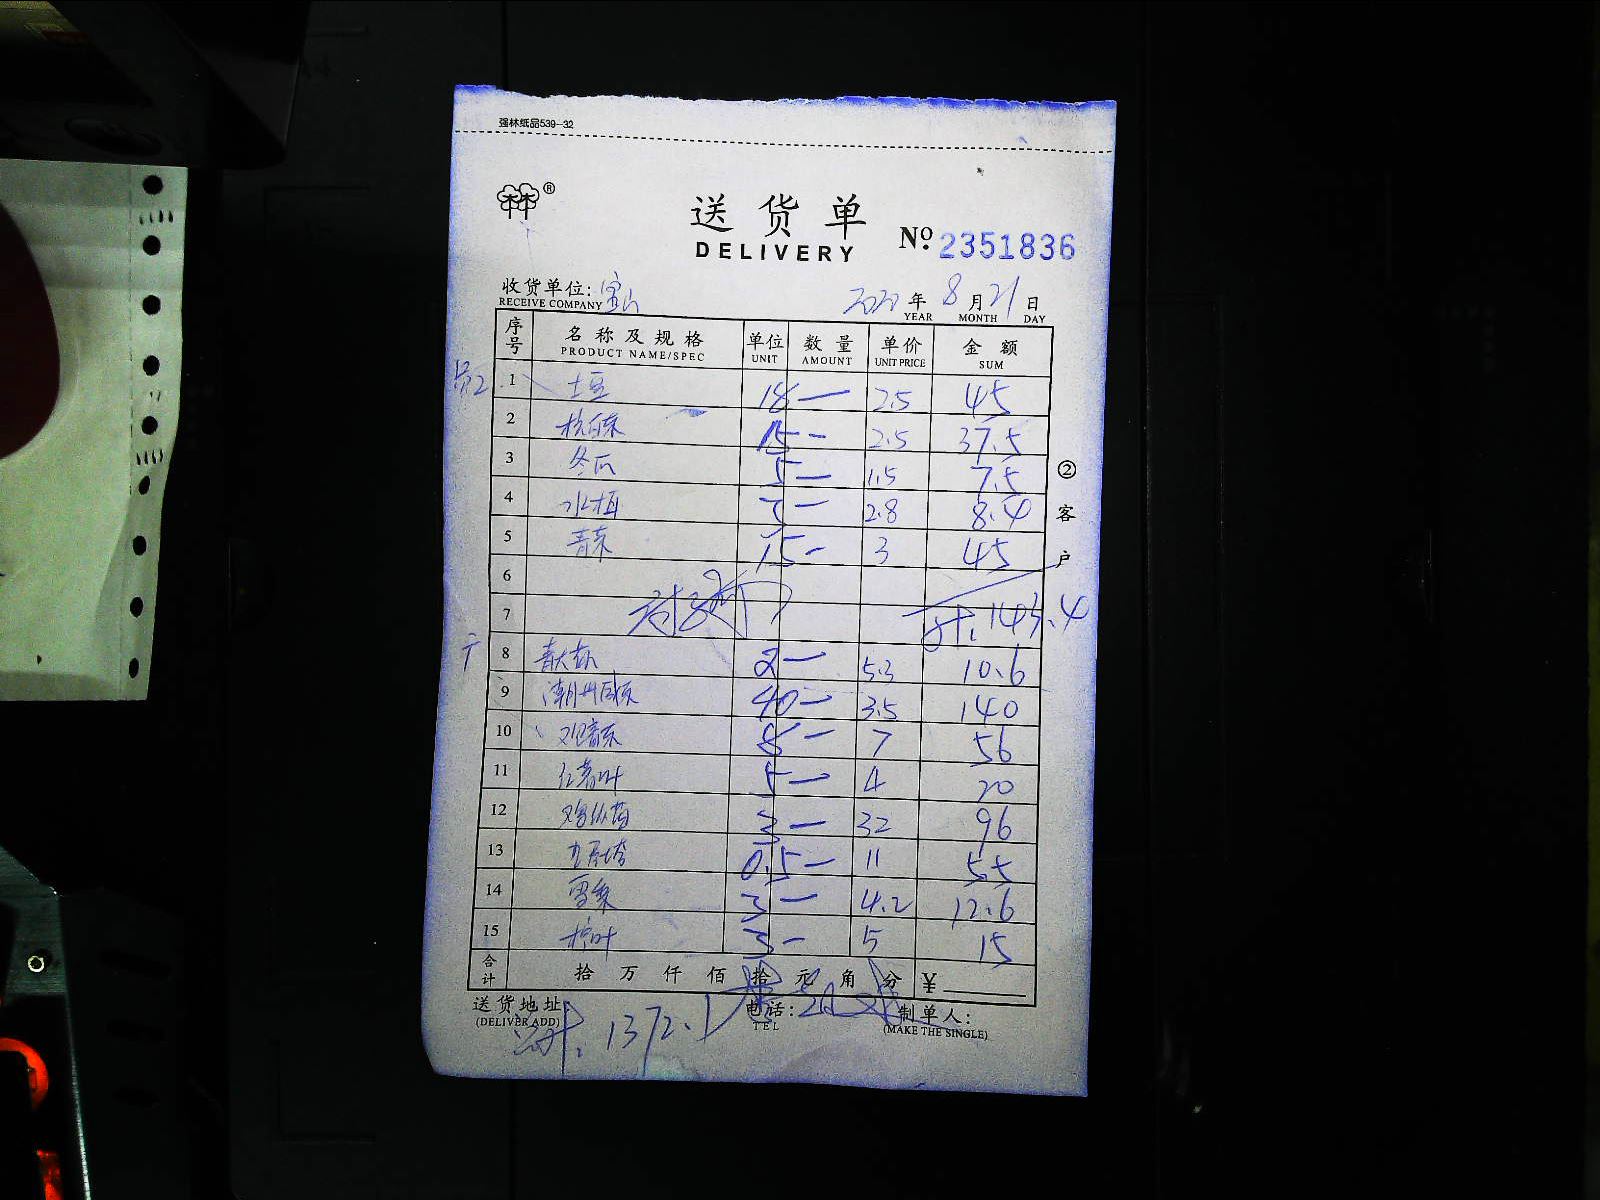 强林纸品539-32
林林®
送货单
DELIVERY
№ 2351836
收货单位: 宝山
RECEIVE COMPANY
2022年8月21日
YEAR MONTH DAY
序号 名称及规格 单位 数量 单价 金额
PRODUCT NAME/SPEC UNIT AMOUNT UNIT PRICE SUM
1 土豆 18 — 2.5 45
2 杭白菜 15 — 2.5 37.5
3 冬瓜 5 — 1.5 7.5
4 3 — 2.8 8.4
5 青菜 15 — 3 45
6
7 计. 143.4
8 2 — 5.3 10.6
9 潮州 40 — 3.5 140
10 8 — 7 56
11 红薯叶 5 — 4 20
12 鸡纵菌 3 — 32 96
13 0.5 — 11 5.5
14 雪梨 3 — 4.2 12.6
15 3 — 5 15
②客户
合计 拾 万 仟 佰 拾 元 角 分 ¥
送货地址: 电话: 制单人:
(DELIVER ADD) TEL (MAKE THE SINGLE)
总计. 1372.1